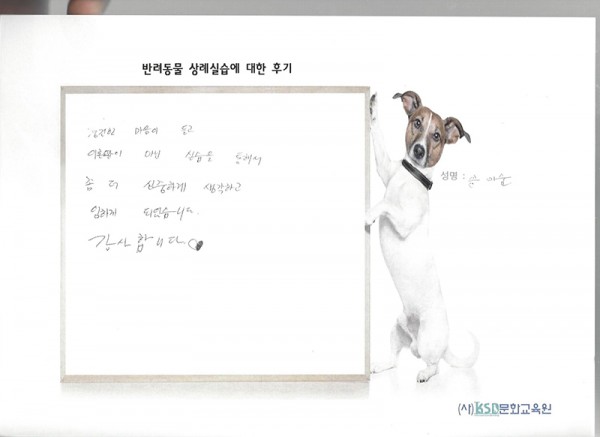 반려동물 상례실습에 대한 후기
마음이
대한 실습을 통해서
좀 더 신중하게 생각하고
임하게 되었습니다.
감사합니다.
성명 : 큰 마음
(사)KSD문화교육원